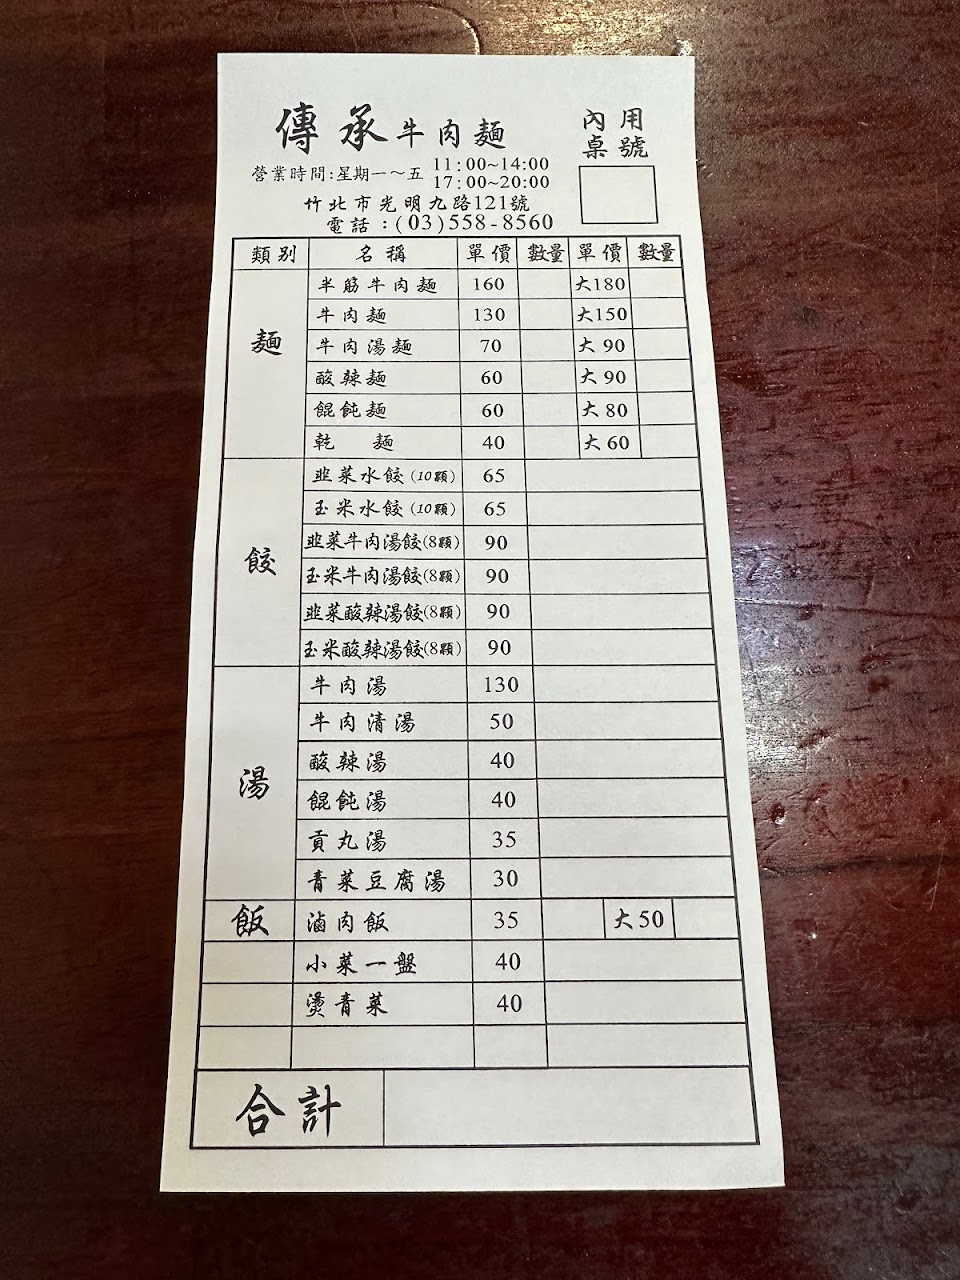 傳承牛肉麵
內用
桌號
營業時間:星期一～五 11:00~14:00
17:00~20:00
竹北市光明九路121號
電話:(03)558-8560
類別 名稱 單價 數量 單價 數量
麵
半筋牛肉麵 160 大180
牛肉麵 130 大150
牛肉湯麵 70 大90
酸辣麵 60 大90
餛飩麵 60 大80
乾 麵 40 大60
餃
韭菜水餃(10顆) 65
玉米水餃(10顆) 65
韭菜牛肉湯餃(8顆) 90
玉米牛肉湯餃(8顆) 90
韭菜酸辣湯餃(8顆) 90
玉米酸辣湯餃(8顆) 90
湯
牛肉湯 130
牛肉清湯 50
酸辣湯 40
餛飩湯 40
貢丸湯 35
青菜豆腐湯 30
飯 滷肉飯 35 大50
小菜一盤 40
燙青菜 40
合計